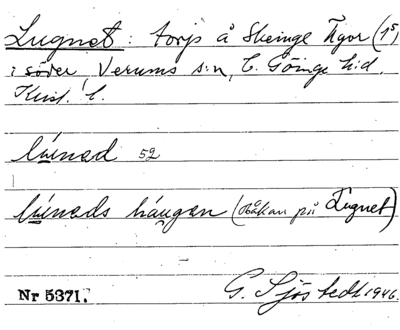 Lugnet: torp å Skeinge ägor (1⁵)
i söder, Verums s:n, V. Göinge hd.
Krist. l.
lúined 52
lúineds háugan (Håkan på Lugnet)
Nr 5371. G. Sjöstedt 1946.